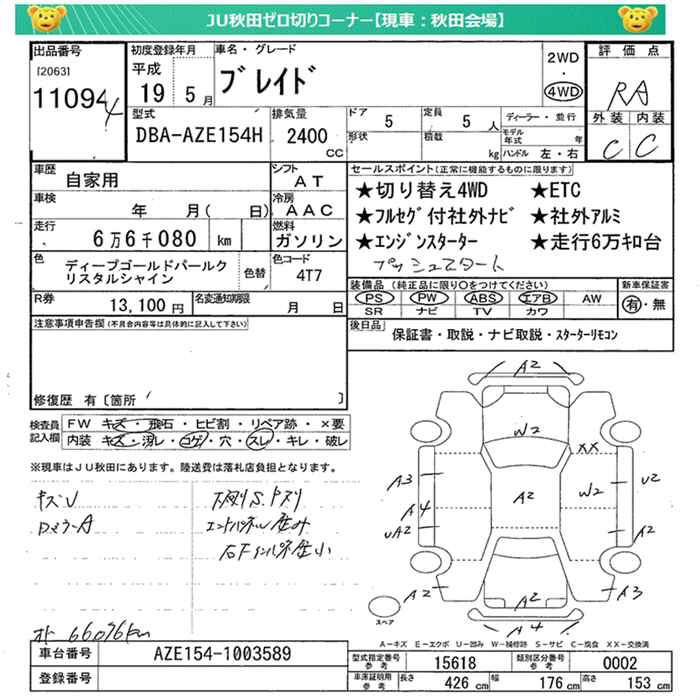 JU秋田ゼロ切りコーナー【現車：秋田会場】
出品番号
[2063]
11094
4
初度登録年月
平成
19 5月
車名・グレード
ブレイド
2WD
・
4WD
評価点
RA
外装 内装
C C
型式
DBA-AZE154H
排気量
2400
CC
ドア 5
定員 5 人
形状
積載 kg
ディーラー・並行
モデル年式 年
ハンドル 左・右
車歴
自家用
シフト
AT
車検
年 月( 日)
冷房
AAC
走行
6万6千080 km
燃料
ガソリン
色
ディープゴールドパールクリスタルシャイン
色替
色コード
4T7
R券
13,100円
名変通知期限
月 日
セールスポイント(正常に機能するものに限ります)
★切り替え4WD ★ETC
★フルセグ付社外ナビ ★社外アルミ
★エンジンスターター ★走行6万キロ台
プッシュスタート
装備品 (純正品に限り○をつけてください)
PS PW ABS エアB AW
SR ナビ TV カワ
新車保証書
有・無
後日品
保証書・取説・ナビ取説・スターターリモコン
注意事項申告欄(不具合内容等は具体的に記入して下さい)
修復歴 有〔箇所 〕
検査員記入欄
FW キズ・飛石・ヒビ割・リペア跡・×要
内装 キズ・汚レ・コゲ・穴・スレ・キレ・破レ
※現車はJU秋田にあります。陸送費は落札店負担となります。
キズU
下廻りS.
エンドパネル歪み
オト 66076km
A2
W2
XX
A3
A2
W2
U2
A4
UA2
A2
A2
A2
A3
A4
スペア
A－キズ E－エクボ U－凹み W－補修跡 S－サビ C－腐食 XX－交換済
車台番号
AZE154-1003589
登録番号
型式指定番号 参考 15618
類別区分番号 参考 0002
車庫証明用 参考 長さ 426 cm 幅 176 cm 高さ 153 cm